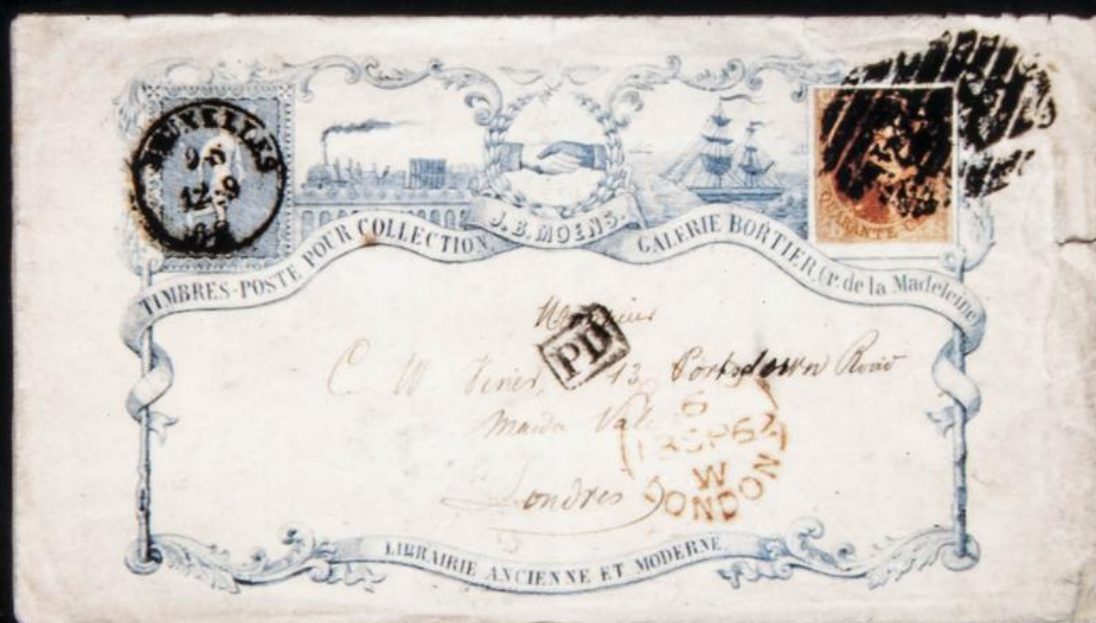 BRUXELLES
12-9
QUARANTE C
J. B. MOENS.
TIMBRES-POSTE POUR COLLECTION, GALERIE BORTIER, (r. de la Madeleine
Monsieur
PD
C W Viner, 13 Portsdown Road
Maida Vale
Londres
6
13 SP 62
W
LONDON
LIBRAIRIE ANCIENNE ET MODERNE